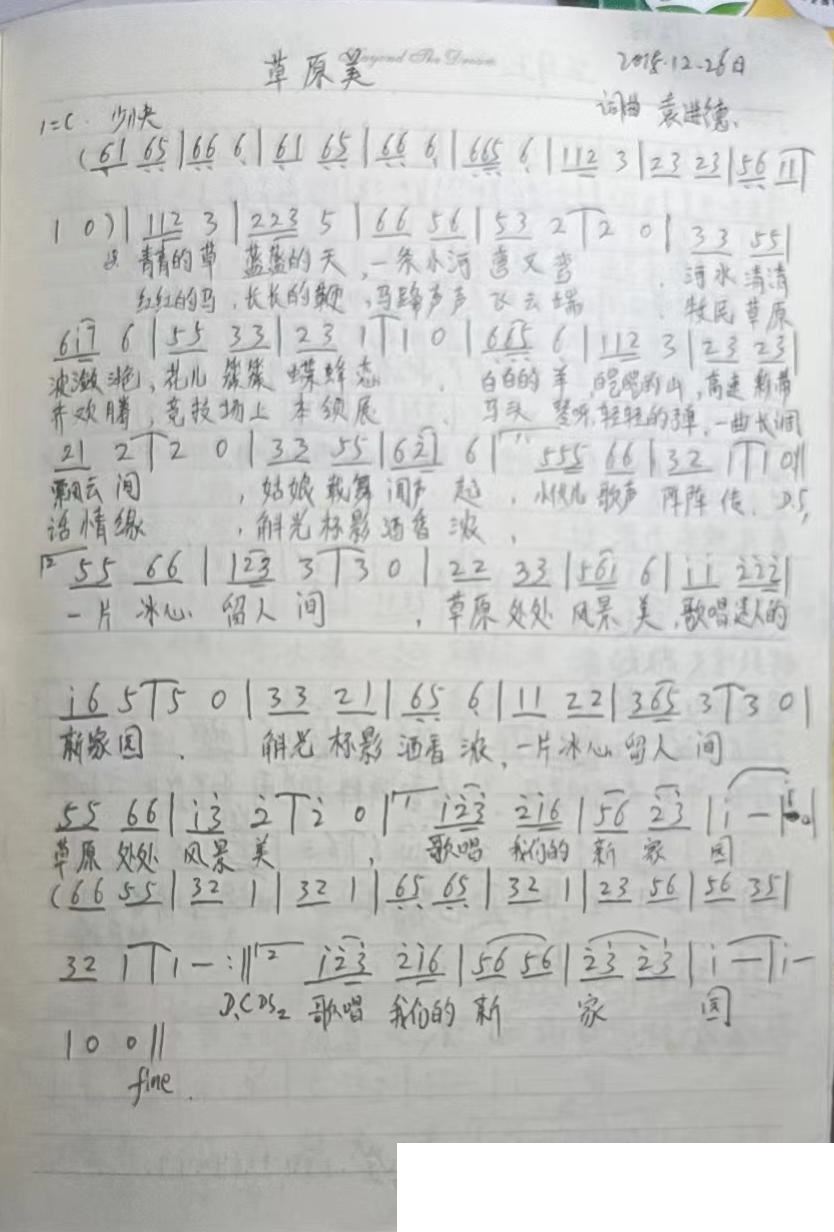 草原美 Beyond The Dream 2015.12.26日
1=C 少快 词曲 袁进德
(61 65|66 6|61 65|66 6|665 6|112 3|23 23|56 11|
1 0)|112 3|223 5|66 56|53 2|2 0|33 55|
青青的草 蓝蓝的天,一条小河 弯又弯 , 河水清清
红红的马,长长的鞭,马蹄声声 飞云端 , 牧民草原
617 6|55 33|23 1|1 0|665 6|112 3|23 23|
波激滟,花儿 簇簇 蝶蜂恋 , 白白的羊,皑皑的山,高速
齐欢腾,竞技场上 本领展 , 马头琴呀,轻轻的弹,一曲长调
21 2|2 0|33 55|621 6|1. 555 66|32 1|1 0||
飘云间 ,姑娘载舞闻声起,小伙儿歌声 阵阵传. D.S,
话情缘 ,觥光杯影洒香浓,
2 55 66|123 3|3 0|22 33|561 6|i i i̇i̇i̇|
一片 冰心 留人间 ,草原处处 风景美,歌唱 的
i6 5|5 0|33 21|65 6|11 22|365 3|3 0|
新家园 , 觥光杯影洒香浓,一片冰心留人间
55 66|i3 2|2 0|1 i23 2i6|56 23|i -|
草原处处 风景美 , 歌唱 我们的 新 家 园
(66 55|32 1|32 1|65 65|32 1|23 56|56 35|
32 1|1 -:||2 i23 2i6|56 56|23 23|i -|i -
D.C DS2 歌唱 我们的 新 家 园
|0 0||
fine.